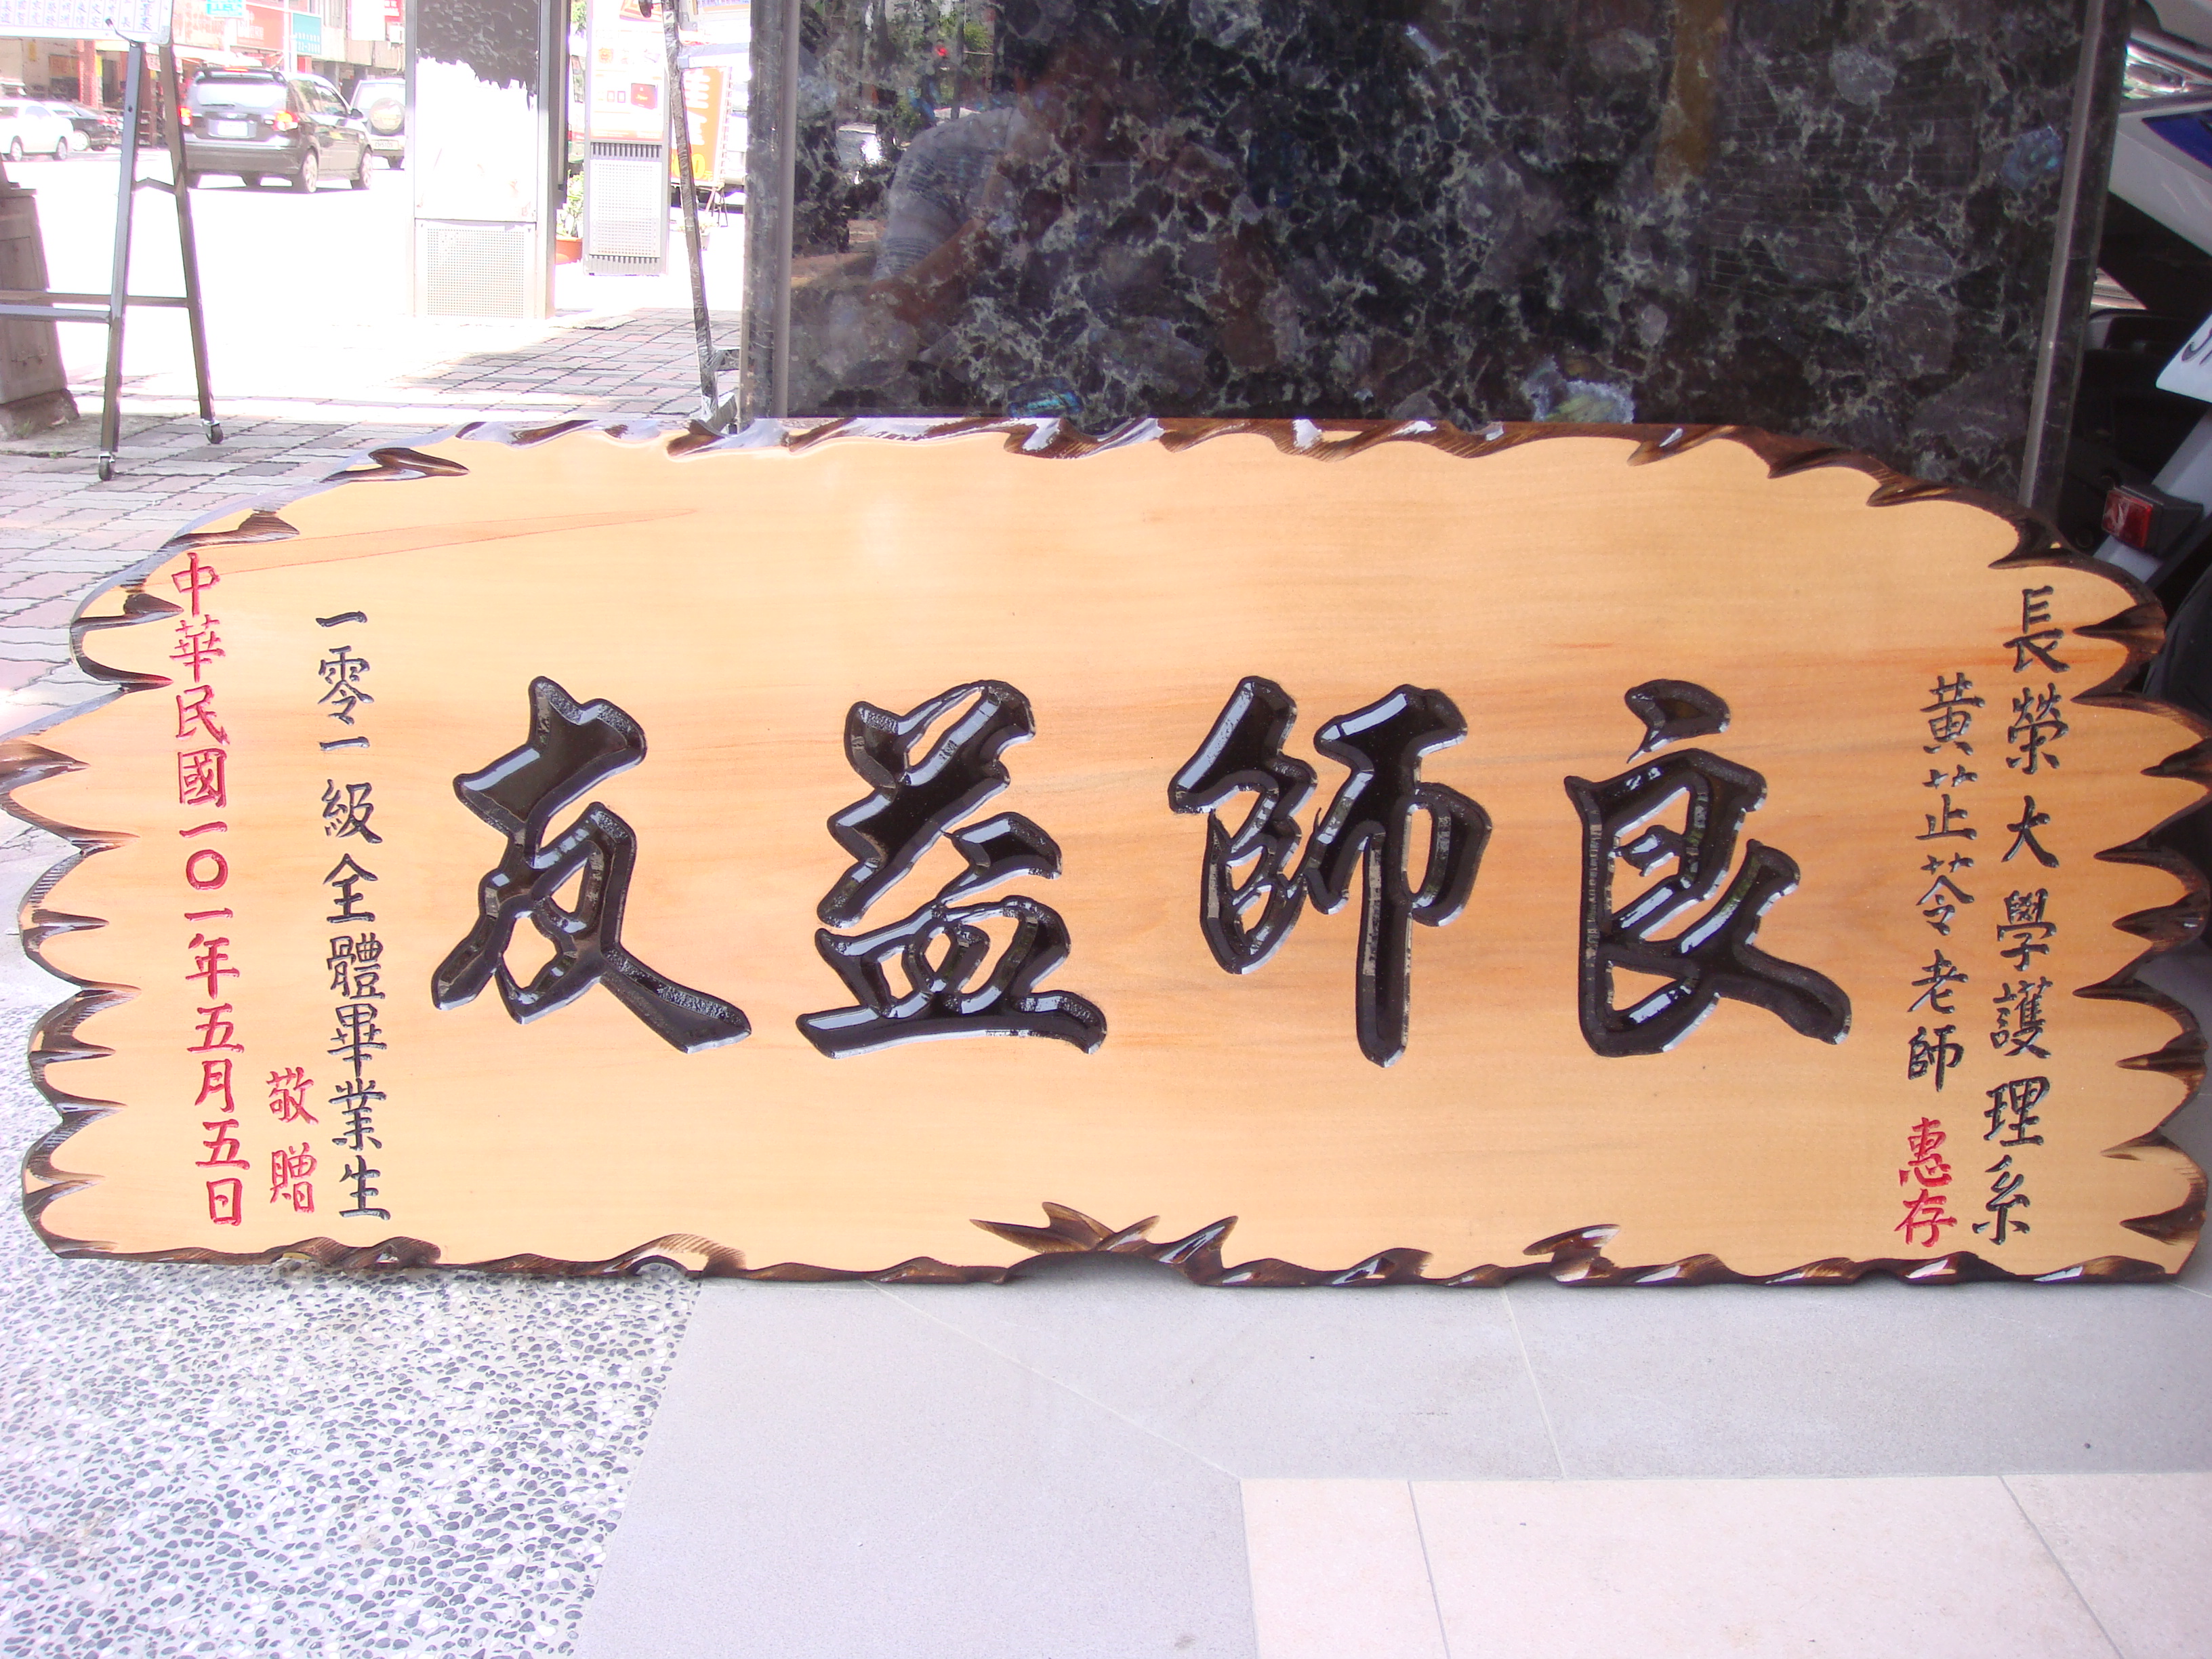 長榮大學護理系
黃芷苓老師 惠存
良師益友
一零一級全體畢業生
敬贈
中華民國一〇一年五月五日